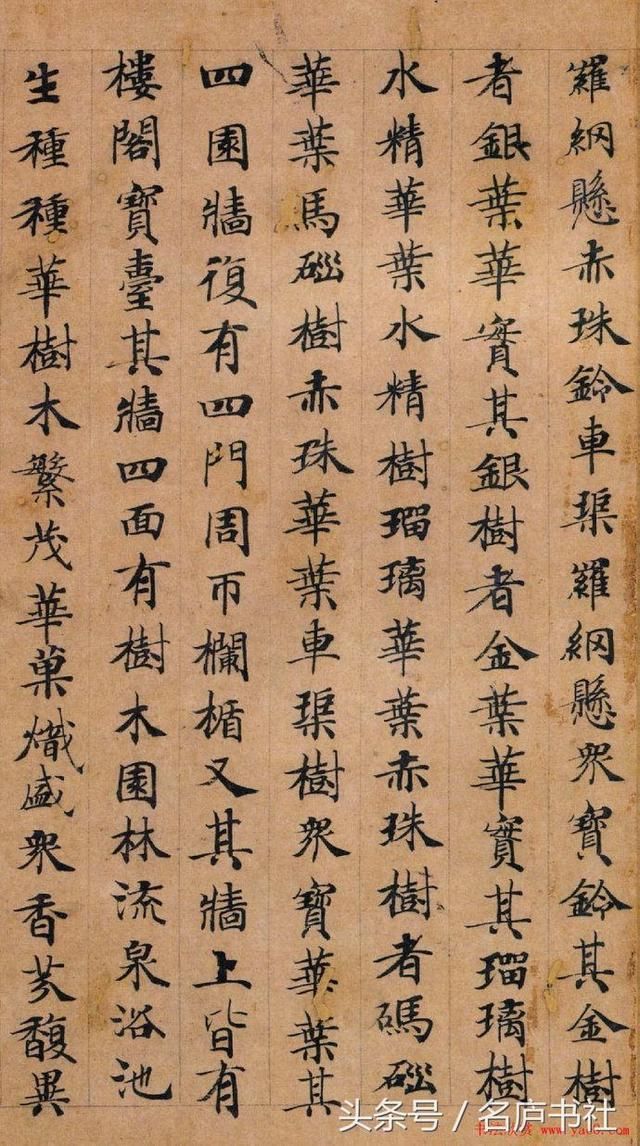 羅網懸赤珠鈴車𤦲羅網懸衆寶鈴其金樹
者銀葉華寳其銀樹者金葉華寳其瑠璃樹
水精華葉水精樹瑠璃華葉赤珠樹者碼碯
華葉馬碯樹赤珠華葉車𤦲樹衆寶華葉其
四園牆復有四門周帀欄楯又其牆上皆有
樓閣寶臺其牆四面有樹木園林流泉浴池
生種種華樹木繁茂華菓熾盛衆香芬馥異
头条号／名庐书社
书法欣赏 www.yac8.com